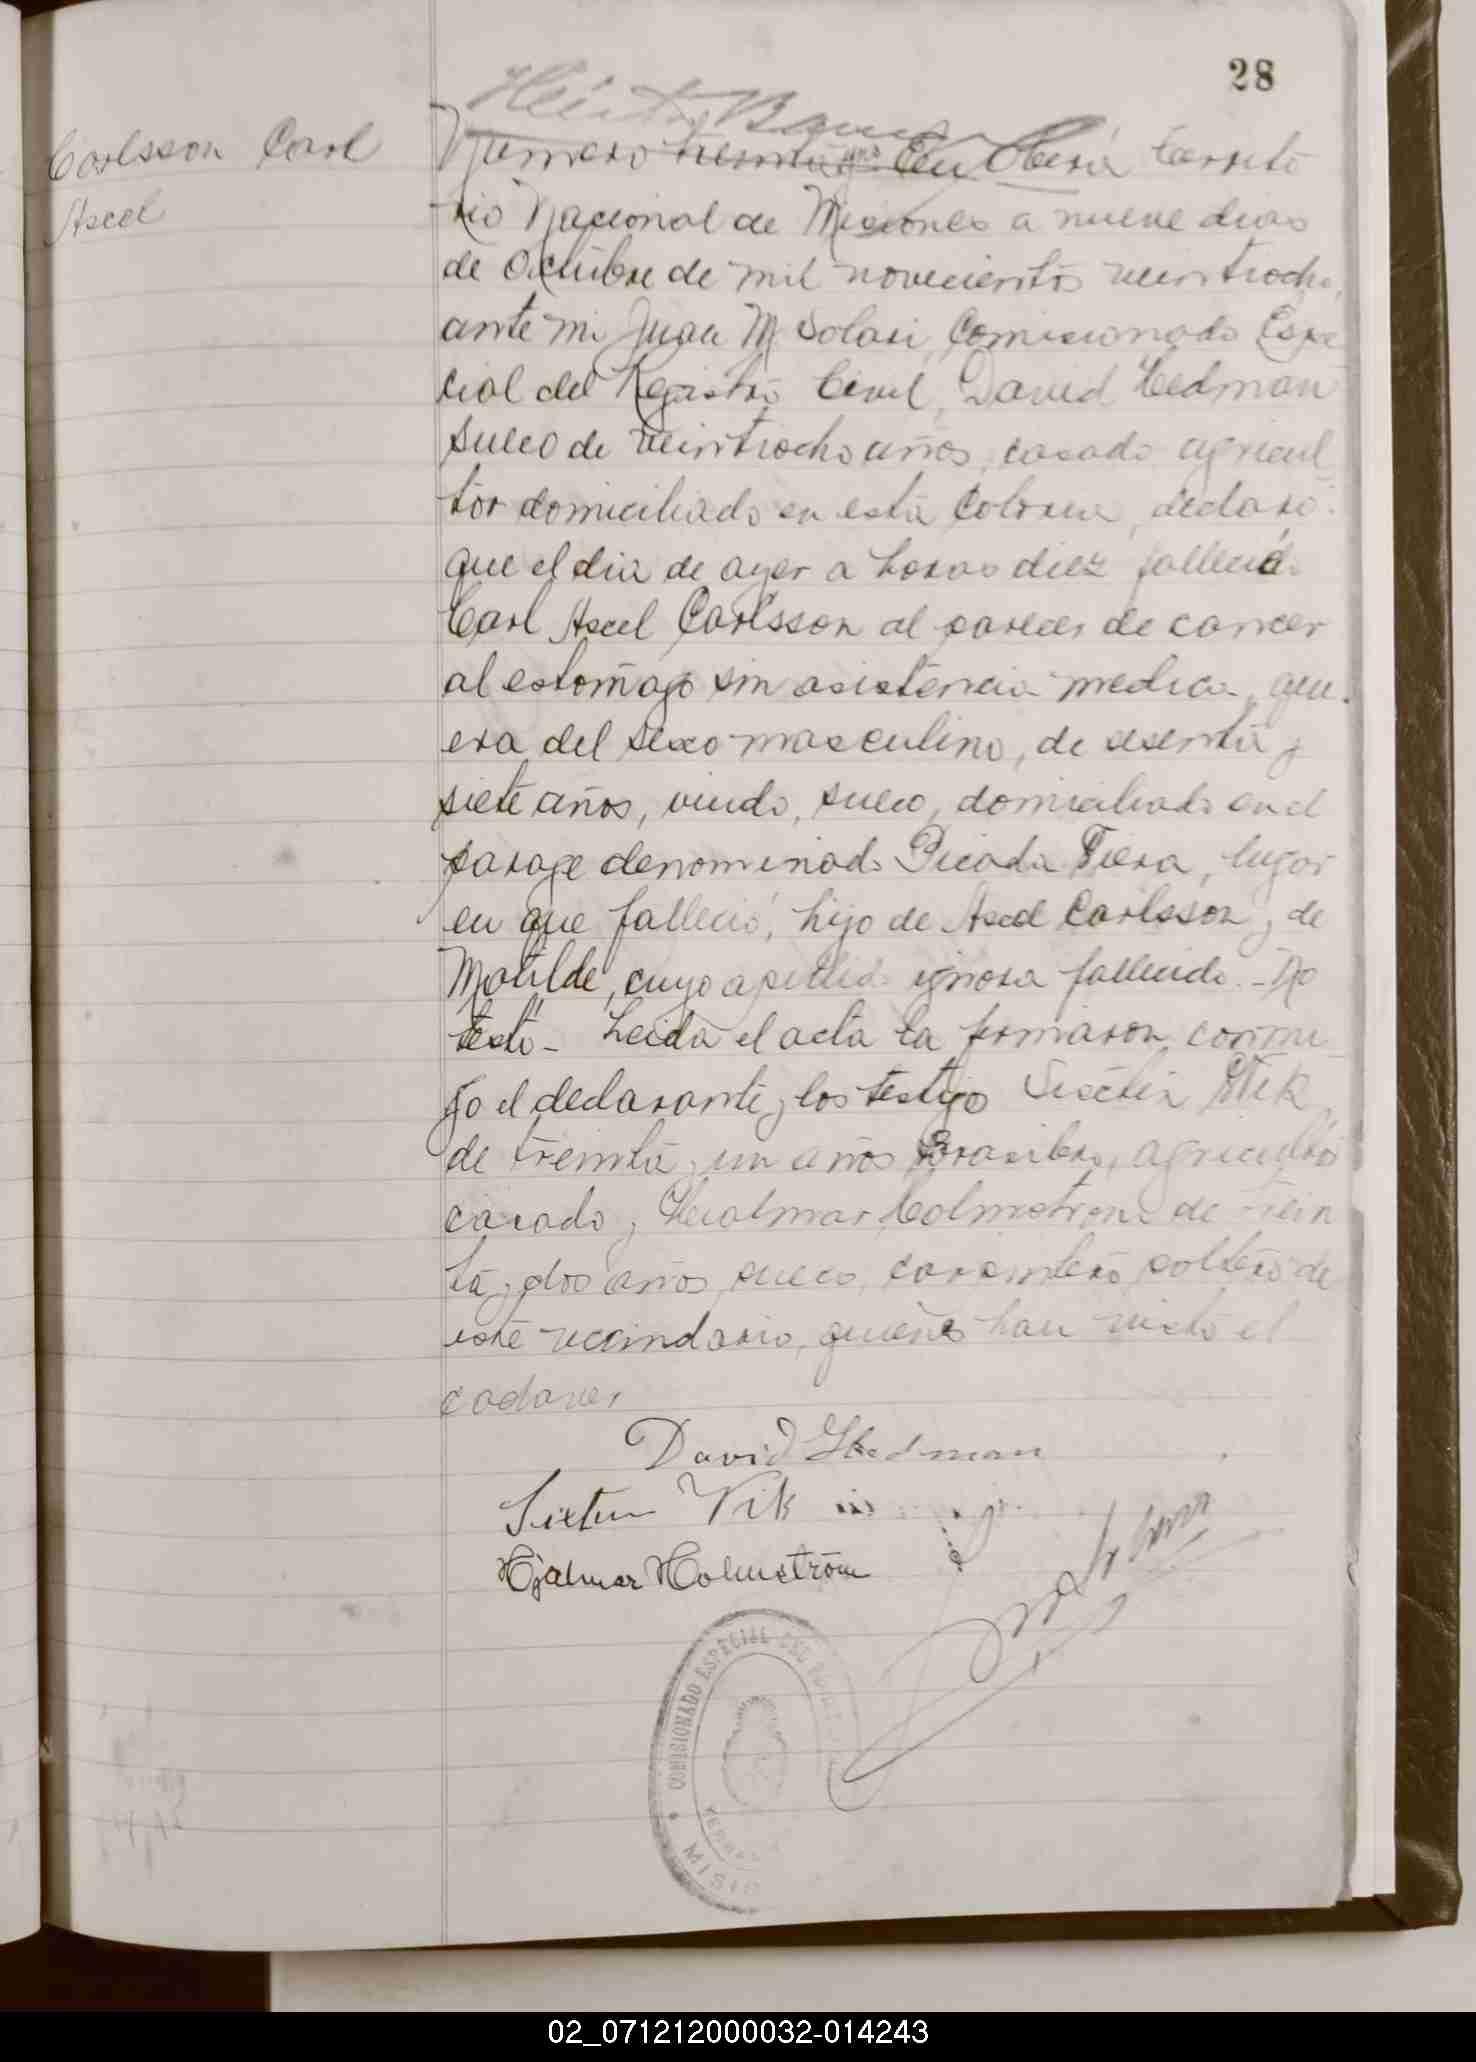 28
Carlsson Carl
Axel
Numero treinta y uno En Oberá Territo
rio Nacional de Misiones a nueve dias
de Octubre de mil novecientos veintiocho,
ante mi Juan M Solari, Comisionado Espe
cial del Registro Civil, David Hedman
sueco de veintiocho años, casado agricul
tor domiciliado en esta Colonia, declaró:
que el dia de ayer a horas diez falleció
Carl Axel Carlsson al parecer de cancer
al estomago sin asistencia medica, que
era del sexo masculino, de sesenta y
siete años, viudo, sueco, domiciliado en el
paraje denominado Picada Fiera, lugar
en que falleció, hijo de Axel Carlsson y de
Matilde, cuyo apellido ignora fallecido. - No
testó - Leida el acta la firmaron conmi
go el declarante y los testigo Sixtin Vik
de treinta y un años Brasilero, agricultor
casado y Hialmar Holmstron de trein
ta y dos años sueco, carpintero soltero de
este vecindario, quienes han visto el
cadaver
David Hedman
Sixten Vik
Hjalmar Holmström
COMISIONADO ESPECIAL DEL
MISIO
02_071212000032-014243